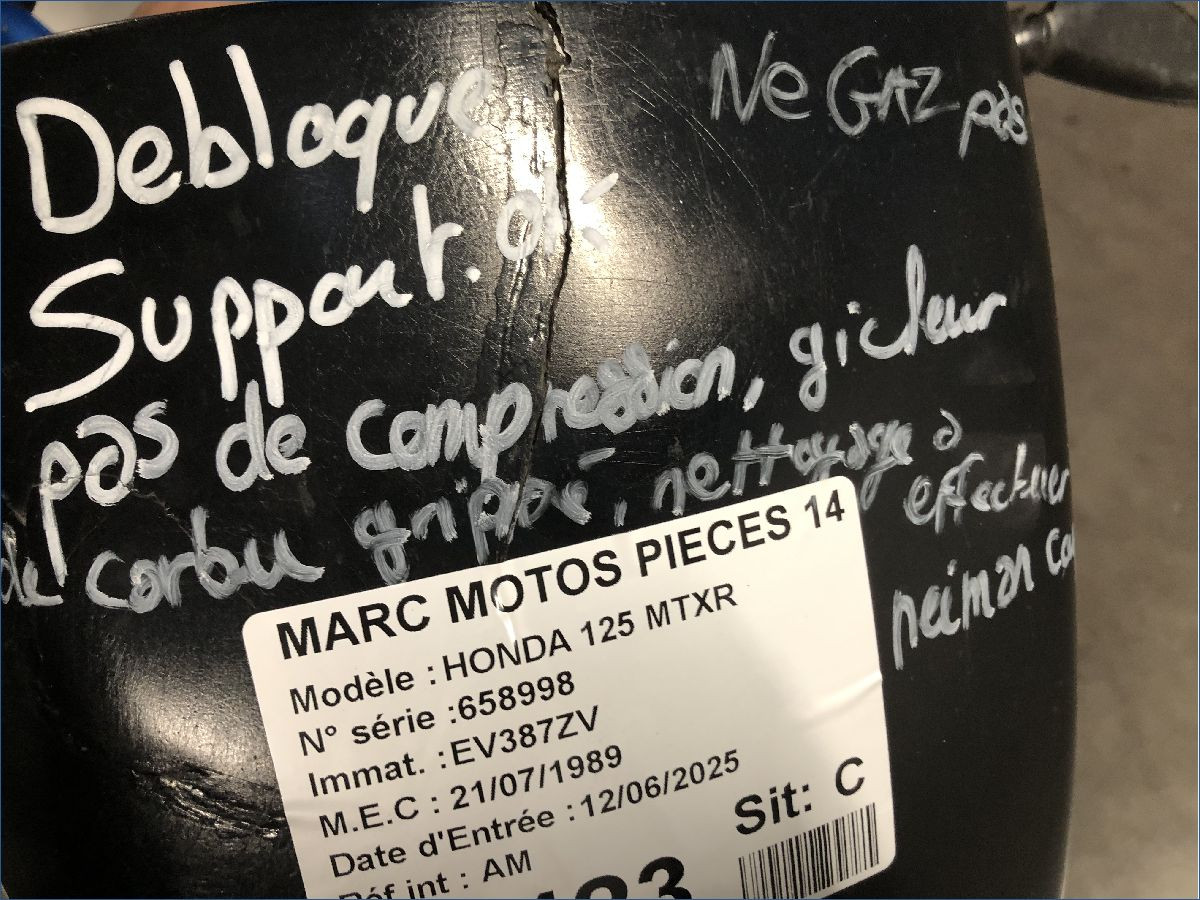 Debloque
Support. ok
Ne GAZ pas
pas de compression, gicleur
de carbu grippé, nettoyage à
effectuer
neiman
MARC MOTOS PIECES 14
Modèle : HONDA 125 MTXR
N° série :658998
Immat. :EV387ZV
M.E.C : 21/07/1989
Date d'Entrée :12/06/2025
Réf int : AM
Sit: C